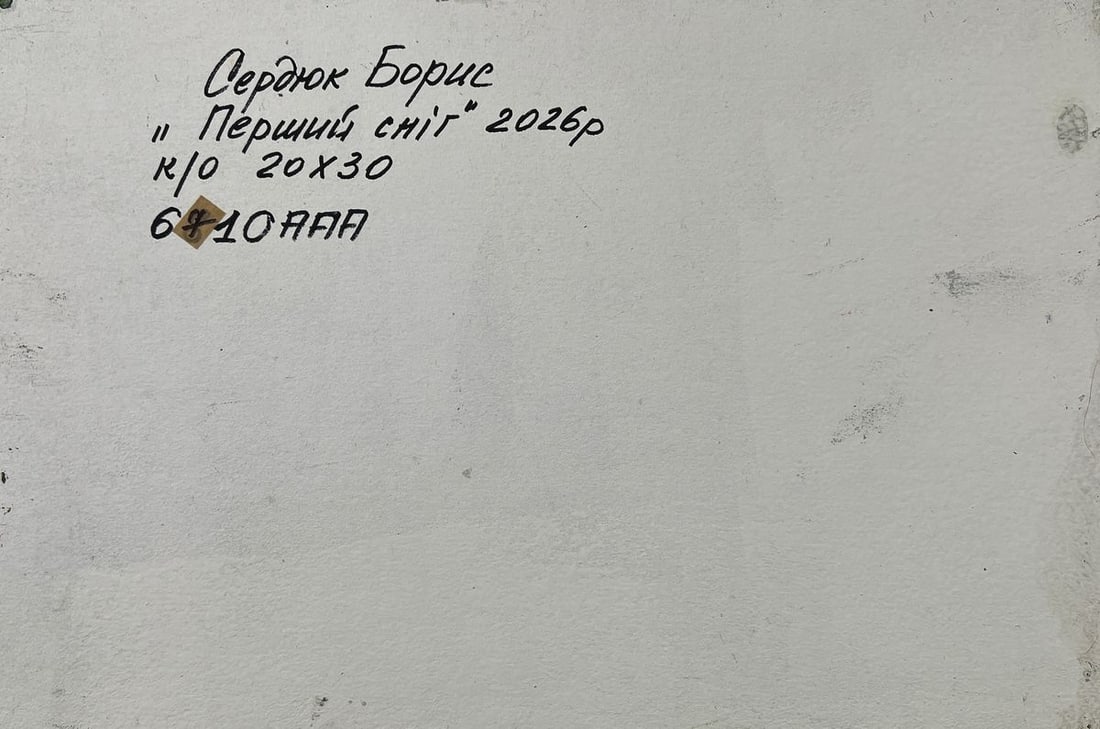 Сердюк Борис
„ Перший сніг" 2026р
к/о 20х30
6710ААА